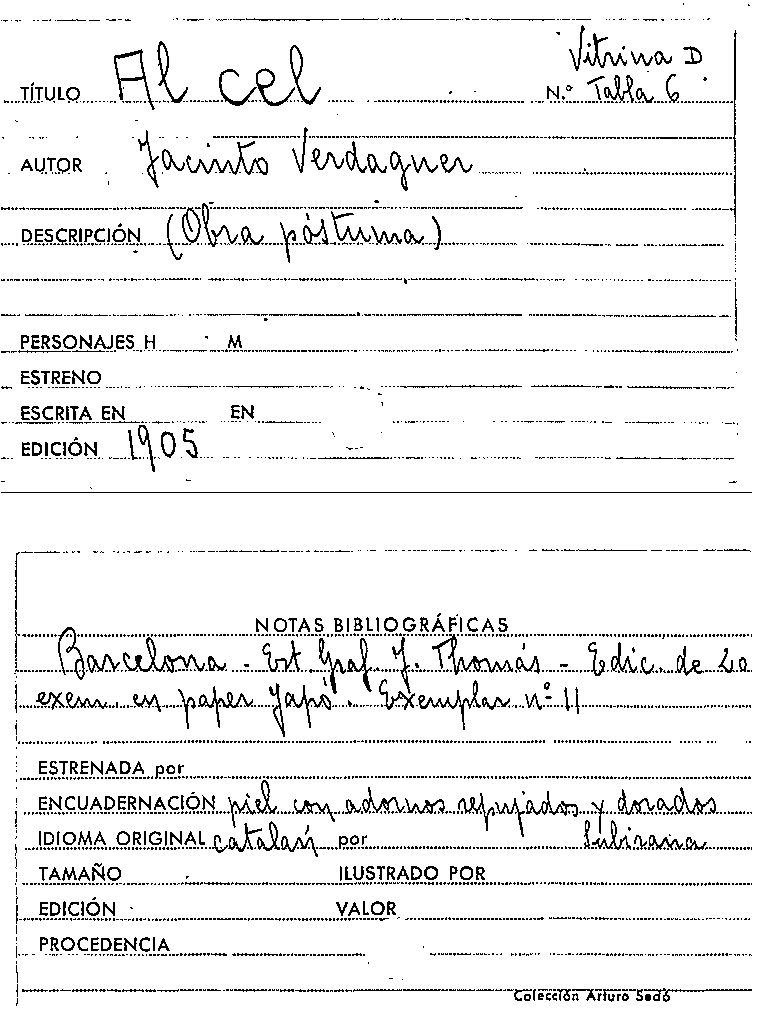 Vitrina D
TÍTULO Al cel N.º Tabla 6
AUTOR Jacinto Verdaguer
DESCRIPCIÓN (Obra póstuma)
PERSONAJES H M
ESTRENO
ESCRITA EN EN
EDICIÓN 1905
NOTAS BIBLIOGRÁFICAS
Barcelona - Est. Graf. J. Thomás - Edic. de 20
exem. en paper Japó. Exemplar nº 11
ESTRENADA por
ENCUADERNACIÓN piel con adornos repujados y dorados
IDIOMA ORIGINAL catalán por Subirana
TAMAÑO ILUSTRADO POR
EDICIÓN VALOR
PROCEDENCIA
Colección Arturo Sedó